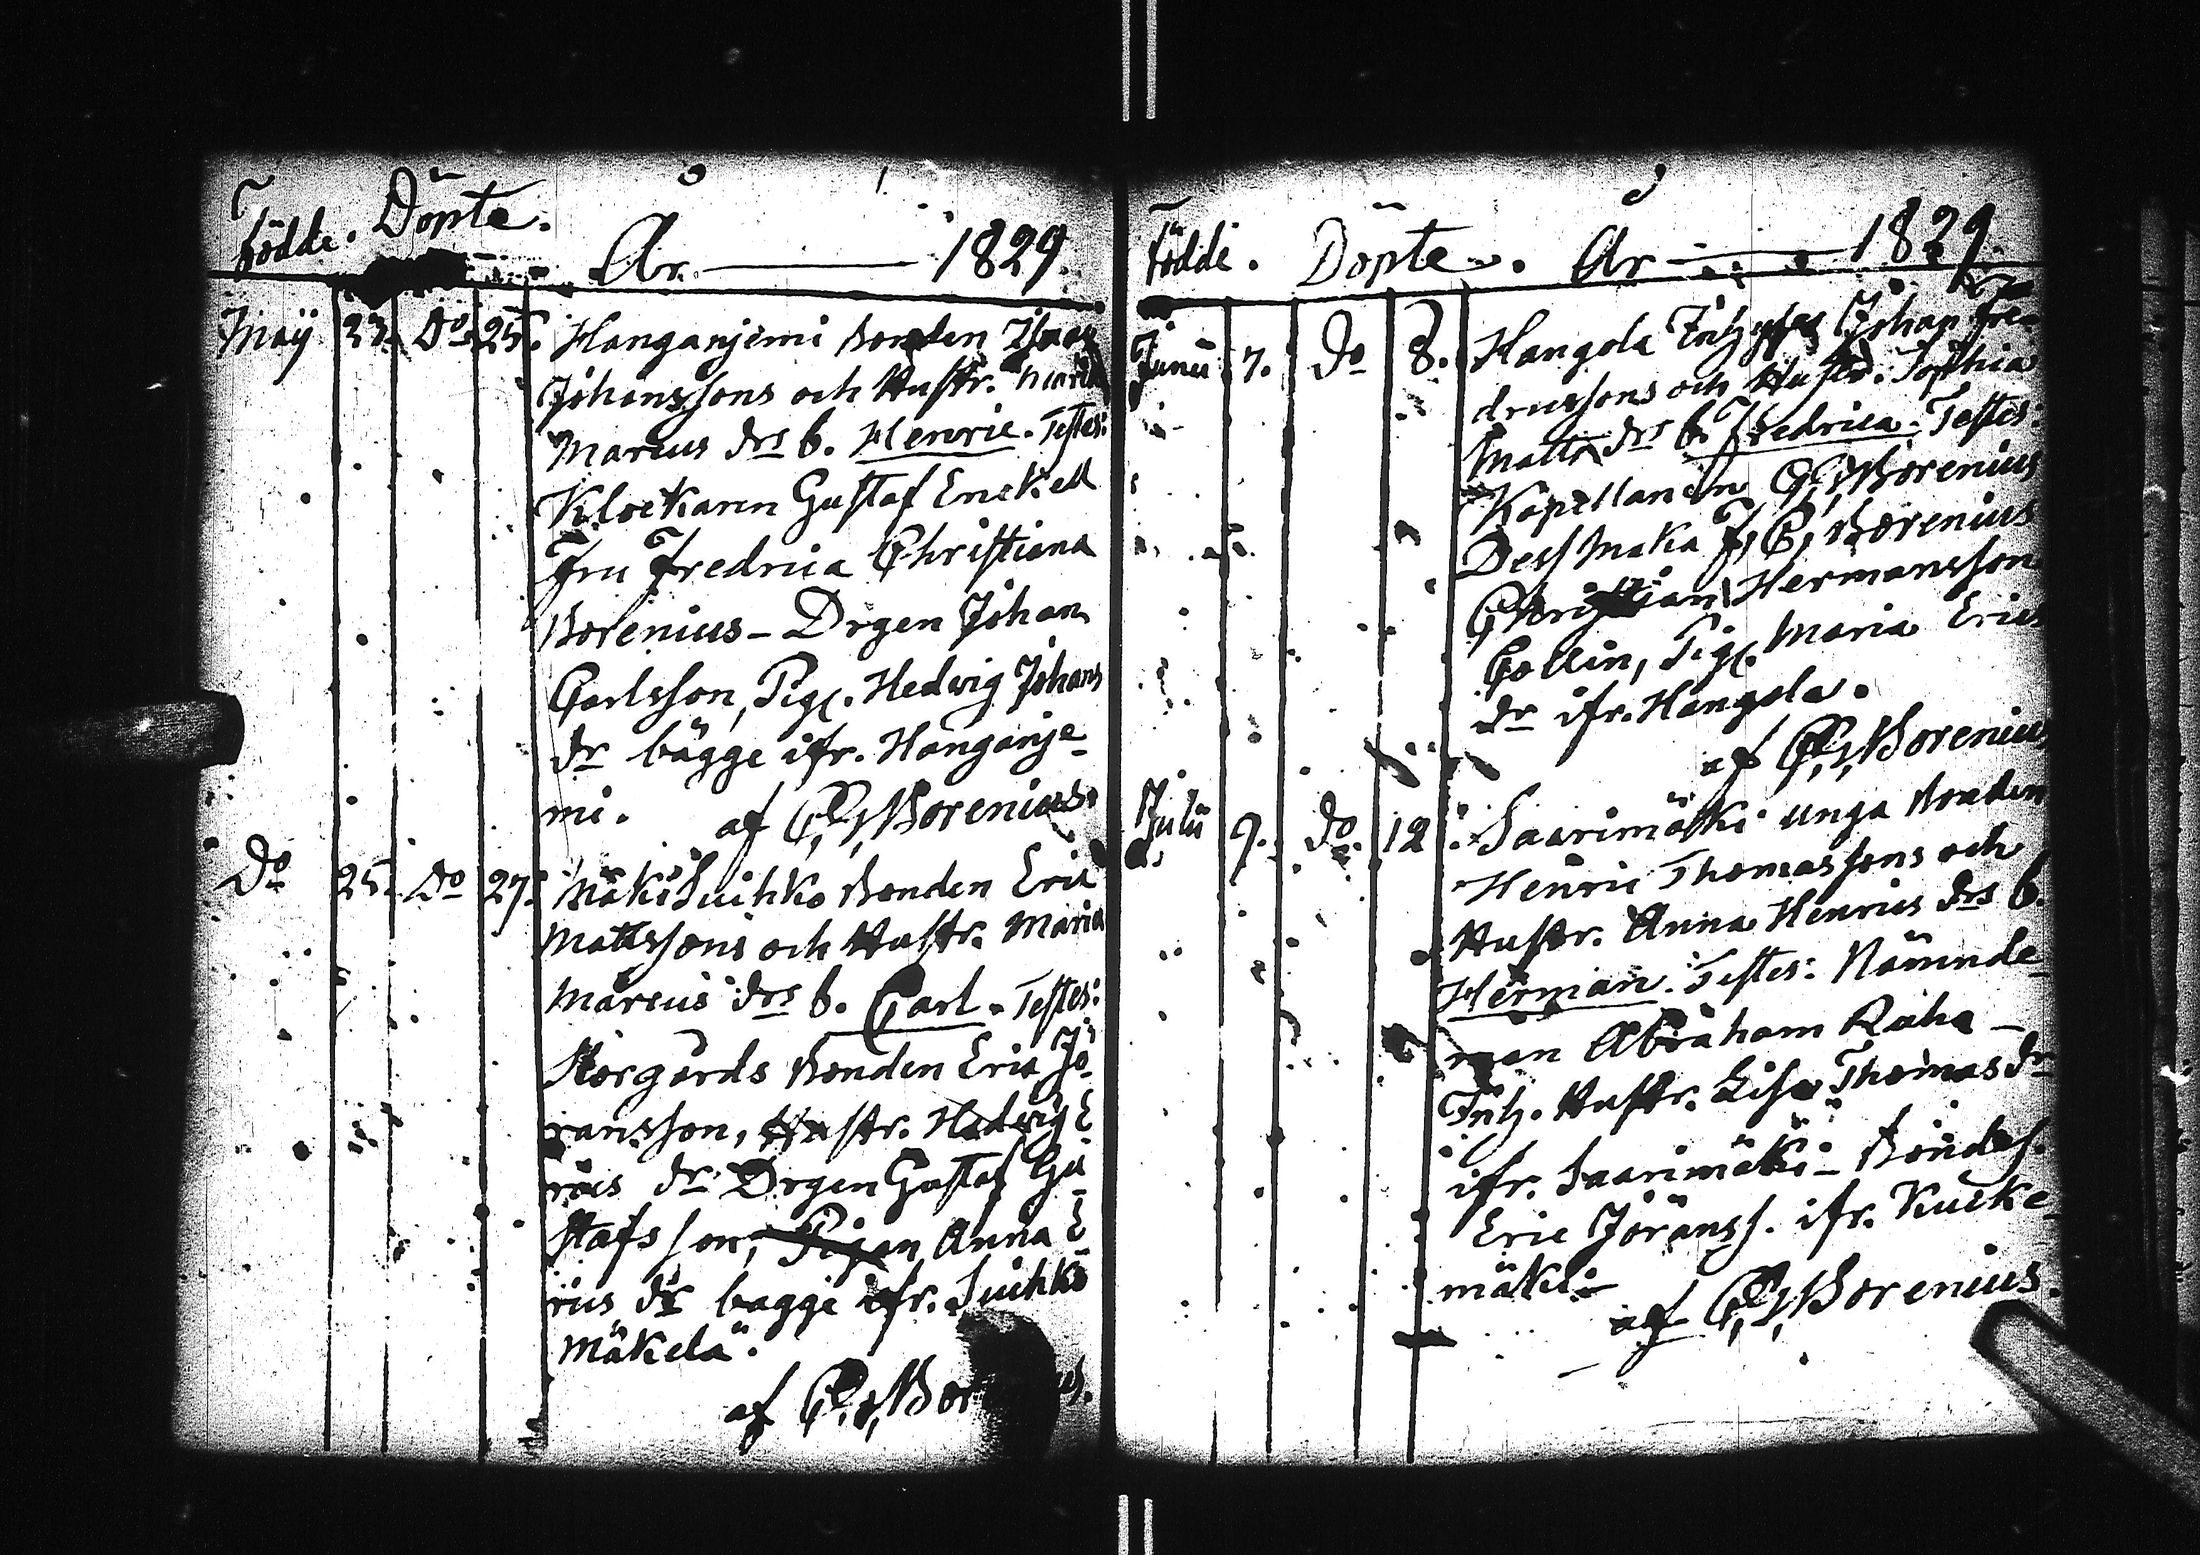 Födde. Döpte. År 1829.
May 23. Do 25. Hanganjemi Bonden Isaac
Johanssons och Hustr. Maria
Marcus drs b. Henric. Testes:
Klockaren Gustaf Enckell
Fru Fredrica Christiana
Borenius - Drgen Johan
Carlsson, Pig. Hedvig Johans
dr bägge ifr. Hanganje-
mi. af C, G, Borenius.
Do 25. Do 27. Mäki Suihko Bonden Eric
Mattssons och Hustr. Maria
Marcus drs b. Carl. Testes:
Storgårds Bonden Eric Jö-
ransson, Hustr. Hedvig E
rics dr Drgen Gustaf Gu-
stafsson, Pigan Anna E-
rics dr bagge ifr. Suihko
mäkelä.
af C, G, Borenius.
Födde. Döpte. År 1829.
Junii 7. Do 8. Hangola Inh Johan Fre-
drecssons och Hustr. Sophia
Matts drs b. Fredrica. Testes:
Kapellanen C, G, Borenius
Dess Maka F, C, Borenius
Christian Hermansson
Collin, Pig. Maria Erics
dr ifr. Hangola.
af C, G, Borenius
Julii 9. Do. 12. Saarimäki unga Bonden
Henric Thomassons och
Hustr. Anna Henrics drs b.
Herman. Testes: Nämnde-
man Abraham Raiha -
Inh. Hustr. Lisa Thomas dr
ifr. Saarimäki - Bondes.
Eric Jöranss. ifr. Kucke-
mäki -
af C, G, Borenius.